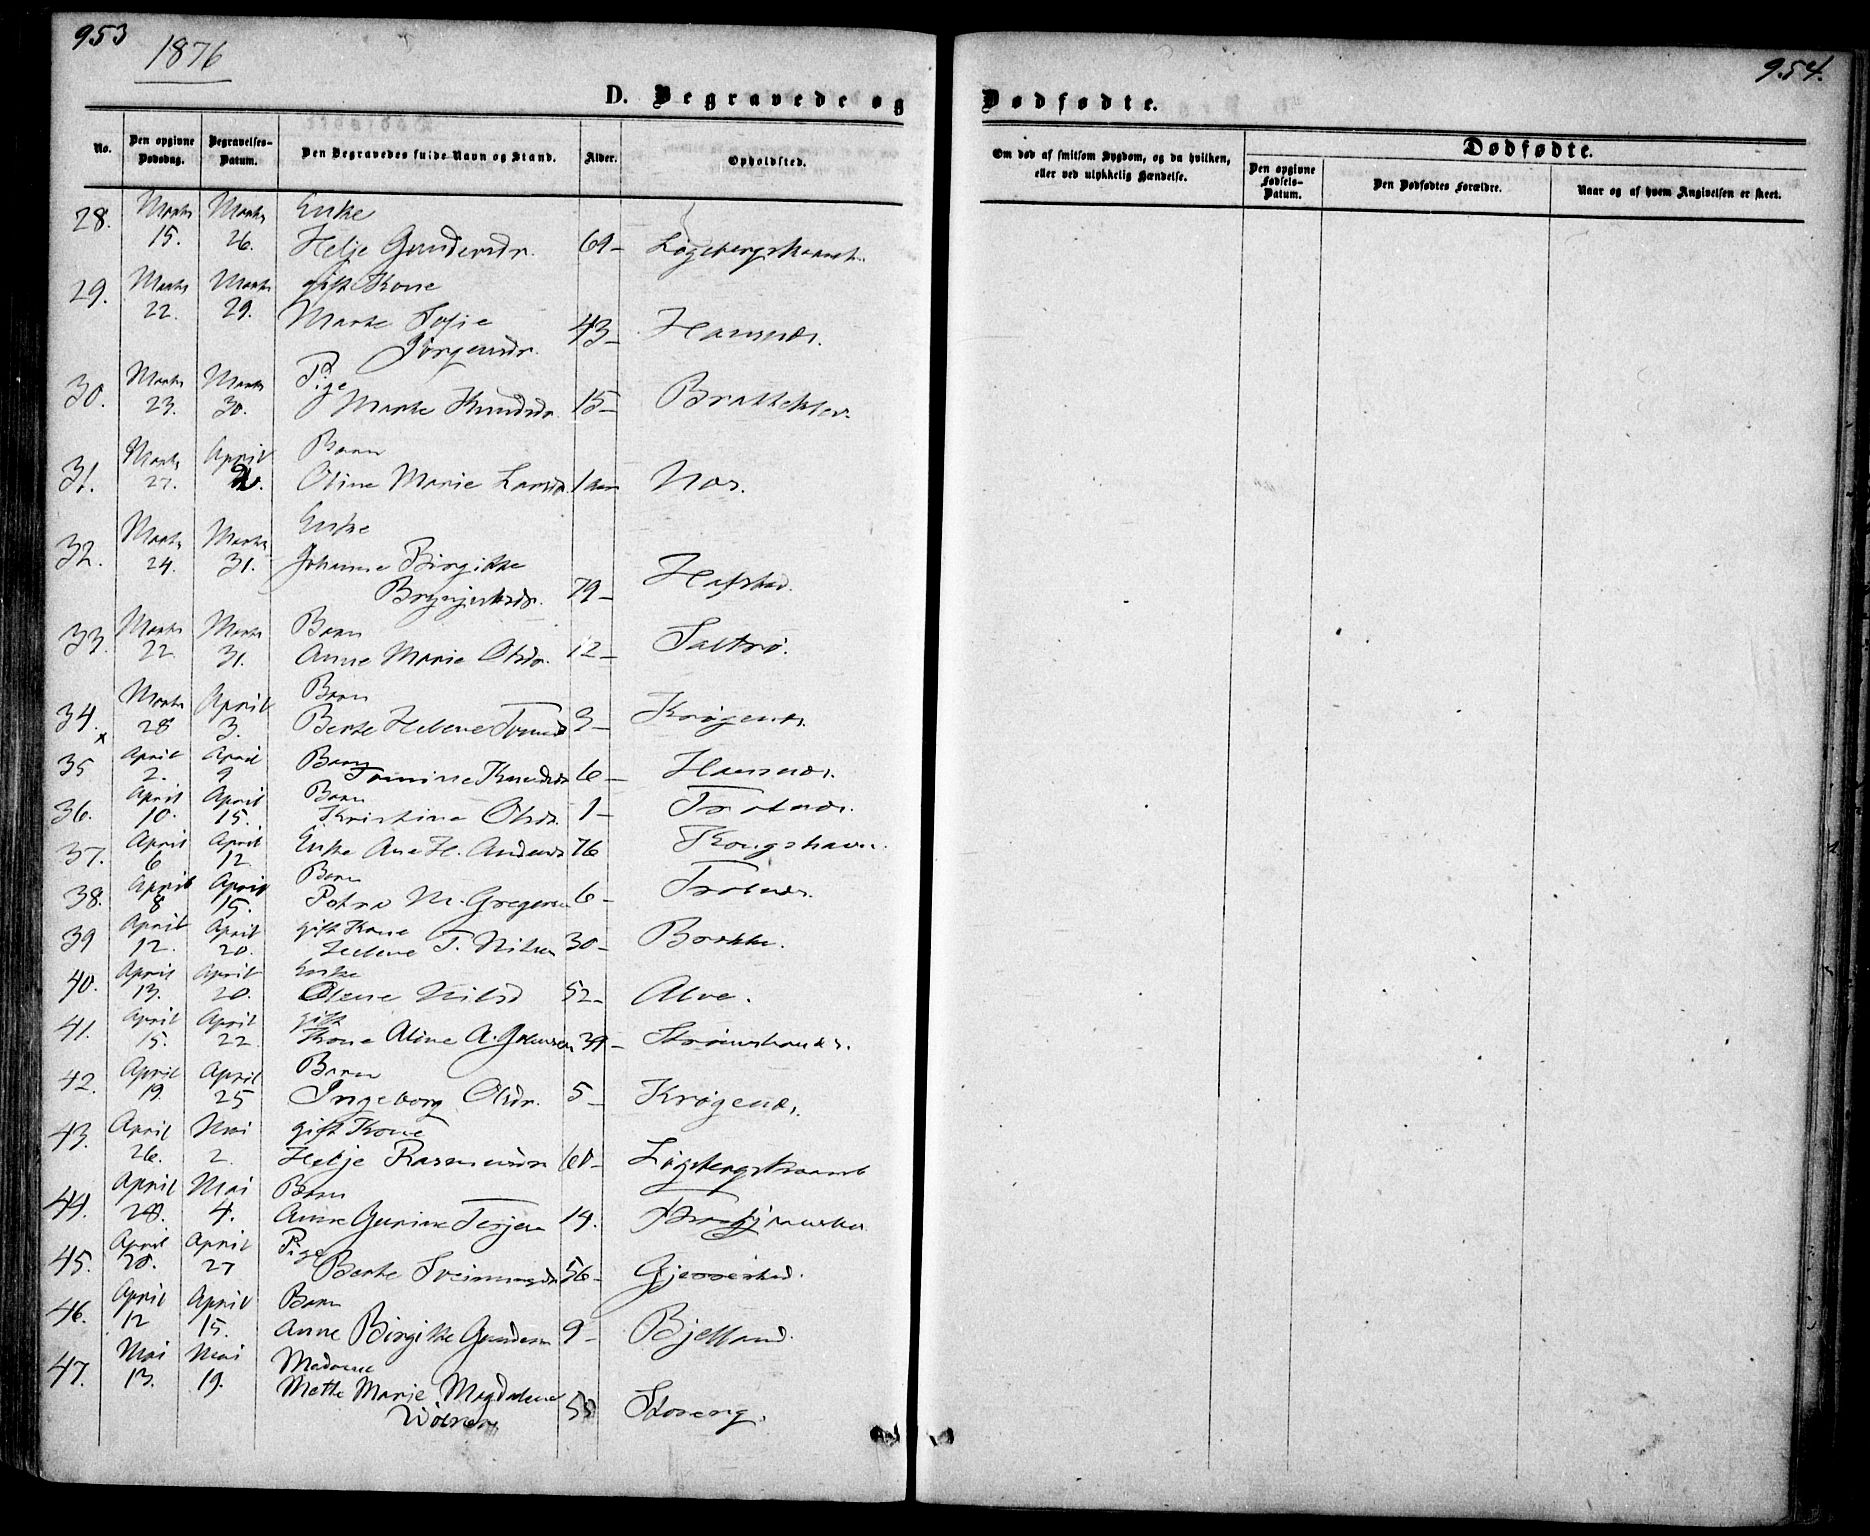 953
1876
954.
D. Begravede og
Dødfødte.
No.
Den opgivne Dødsdag.
Begravelses-Datum.
Den Begravedes fulde Navn og Stand.
Alder.
Opholdsted.
Om død af smitsom Sygdom, og da hvilken, eller ved ulykkelig Hændelse.
Dødfødte.
Den opgivne Fødsels-Datum.
Den Dødfødtes Forældre.
Naar og af hvem Angivelsen er skeet.
28. Marts 15. Marts 26. Enke
Helje Gundersdr. 69-
29. Marts 22. Marts 29. gift Kone
Marte Sofie
Jørgensdr. 43- Hansnæs.
30. Marts 23. Marts 30. Pige
Marte Knudsdr 15- Bratteklev
31. Marts 27. April 2. Barn
Oline Marie Larsdr. 1 aar Næs.
32. Marts 24. Marts 31. Enke
Johanne Birgitte
79- Hafstad.
33. Marts 22. Marts 31. Barn
Anne Marie Olsdr. 12- Saltrø.
34. Marts 28 April 3. Barn
Berte Helene 3- Krøgenæs
35 April 2. April 9 Barn
Knudsdr 6- Hansnæs.
36. April 10. April 15. Barn
Kristine Olsdr. 1- Trotnæs.
37. April 6 April 12 Enke Ane H. Anders 76 Kongshavn.
38. April 8 April 15. Barn
Petra M. Gregersen 6- Trotnæs.
39 April 12. April 20. gift Kone
Helene T. Nilsen 30- Brække.
40. April 13. April 20. Enke
Olene Nilsd 52- Alve.
41. April 15. April 22 gift
Kone Aline A. 39-
42. April 19. April 25 Barn
Ingeborg Olsdr. 5- Krøgenæs.
43. April 26. Mai 2. gift Kone
Helje Rasmusdr 60-
44. April 28. Mai 4. Barn
Anne Gurine Terjesn 14.
45. April 20. April 27 Pige
Berte 56- Gjerrestad.
46. April 12 April 15. Barn
Anne Birgitte Gundersn 9- Bjelland.
47. Mai 13. Mai 19. Madame
Mette Marie Magdalene
Storeng.